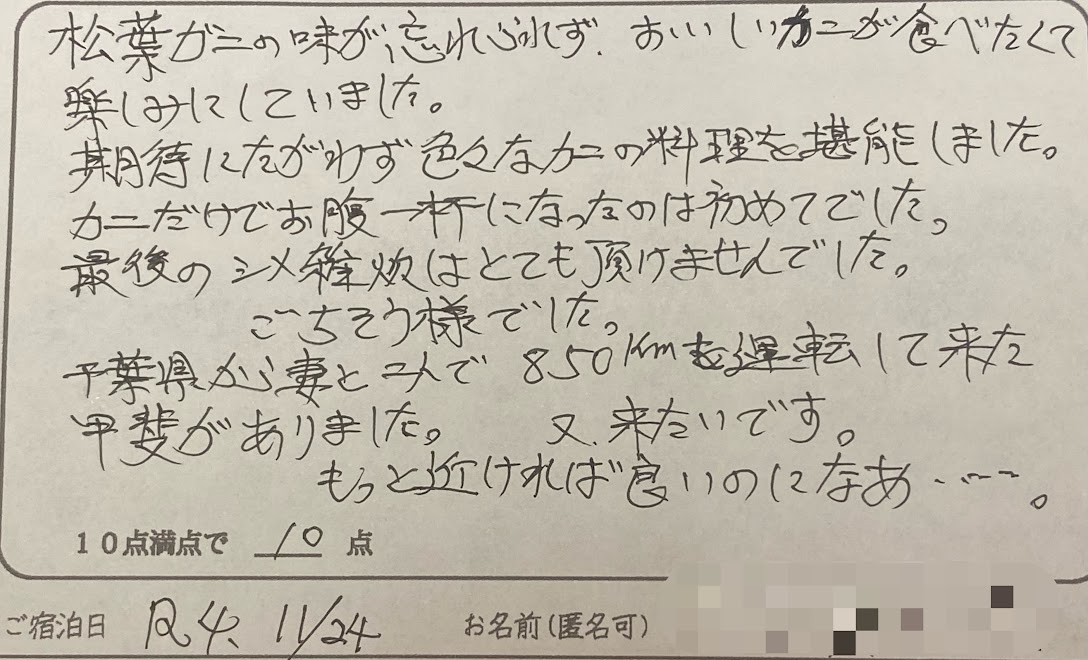 松葉ガニの味が忘れられず、おいしいカニが食べたくて
楽しみにしていました。
期待にたがわず色々なカニの料理を堪能しました。
カニだけでお腹一杯になったのは初めてでした。
最後のシメ雑炊はとても頂けませんでした。
ごちそう様でした。
千葉県から妻と二人で850Kmを運転して来た
甲斐がありました。 又、来たいです。
もっと近ければ良いのになあ……。
10点満点で 10 点
ご宿泊日 R4、11/24 お名前(匿名可)